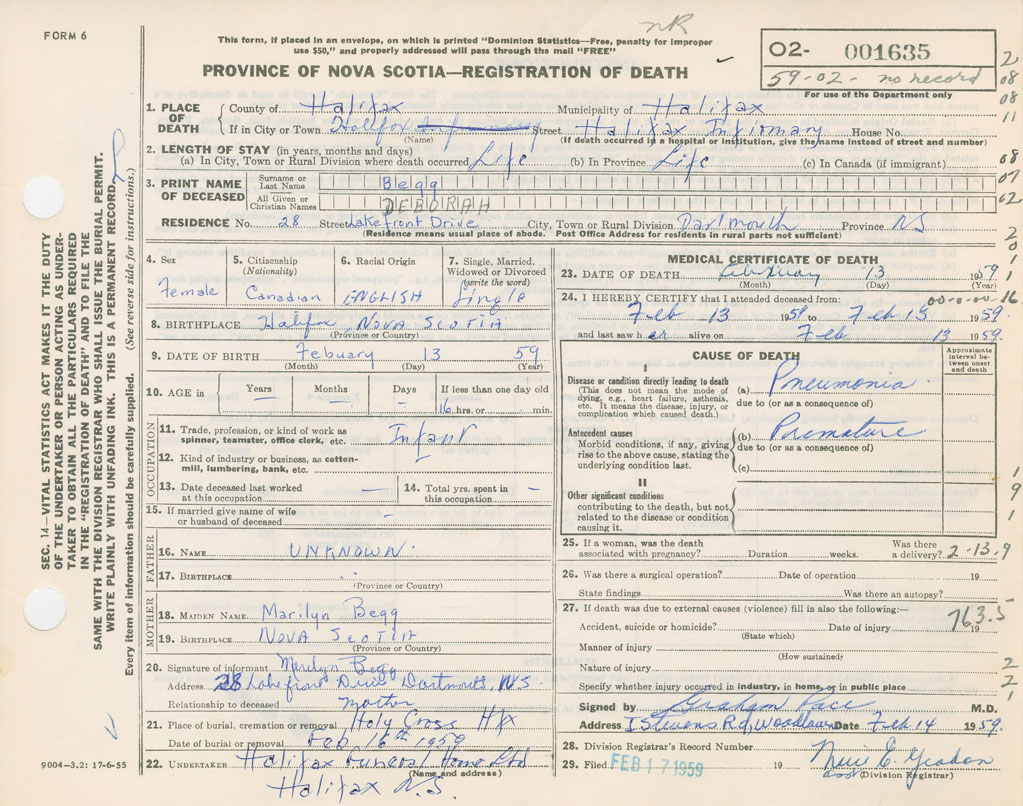 FORM 6
nR
This form, if placed in an envelope, on which is printed "Dominion Statistics—Free, penalty for improper
use $50," and properly addressed will pass through the mail "FREE"
PROVINCE OF NOVA SCOTIA—REGISTRATION OF DEATH
02- 001635
59-02- no record
For use of the Department only
1. PLACE OF DEATH
County of Halifax Municipality of Halifax
If in City or Town Halifax Infirmary Street Halifax Infirmary House No.
(Name) (If death occurred in a hospital or institution, give the name instead of street and number)
2. LENGTH OF STAY (in years, months and days)
(a) In City, Town or Rural Division where death occurred Life (b) In Province Life (c) In Canada (if immigrant)
3. PRINT NAME OF DECEASED
Surname or Last Name Begg
All Given or Christian Names DEBORAH
RESIDENCE No. 28 Street Lakefront Drive City, Town or Rural Division Dartmouth Province NS
(Residence means usual place of abode. Post Office Address for residents in rural parts not sufficient)
4. Sex Female
5. Citizenship (Nationality) Canadian
6. Racial Origin ENGLISH
7. Single, Married, Widowed or Divorced (write the word) Single
8. BIRTHPLACE Halifax, NOVA SCOTIA
(Province or Country)
9. DATE OF BIRTH Febuary 13 59
(Month) (Day) (Year)
10. AGE in Years — Months — Days — If less than one day old
16 hrs. or min.
OCCUPATION
11. Trade, profession, or kind of work as
spinner, teamster, office clerk, etc. Infant
12. Kind of industry or business, as cotton-
mill, lumbering, bank, etc. —
13. Date deceased last worked
at this occupation —
14. Total yrs. spent in
this occupation —
15. If married give name of wife
or husband of deceased -
FATHER
16. NAME UNKNOWN.
17. BIRTHPLACE
(Province or Country)
MOTHER
18. MAIDEN NAME Marilyn Begg
19. BIRTHPLACE NOVA SCOTIA
(Province or Country)
20. Signature of informant Marilyn Begg
Address 28 Lakefront Drive Dartmouth, N.S.
Relationship to deceased mother
21. Place of burial, cremation or removal Holy Cross Hfx
Date of burial or removal Feb 16th 1959
22. UNDERTAKER Halifax Funeral Home Ltd
(Name and address)
Halifax N.S.
MEDICAL CERTIFICATE OF DEATH
23. DATE OF DEATH February 13 1959
(Month) (Day) (Year)
24. I HEREBY CERTIFY that I attended deceased from: 00-0-00-16
Feb 13 1959 to Feb 13 1959
and last saw her alive on Feb 13 1959.
CAUSE OF DEATH
Approximate interval between onset and death
I
Disease or condition directly leading to death
(This does not mean the mode of
dying, e.g., heart failure, asthenia,
etc. It means the disease, injury, or
complication which caused death.)
(a) Pneumonia
due to (or as a consequence of)
Antecedent causes
Morbid conditions, if any, giving
rise to the above cause, stating the
underlying condition last.
(b) Premature
due to (or as a consequence of)
(c)
II
Other significant conditions
contributing to the death, but not
related to the disease or condition
causing it.
25. If a woman, was the death
associated with pregnancy? Duration weeks. Was there
a delivery? 2-13.9
26. Was there a surgical operation? Date of operation 19
State findings Was there an autopsy?
27. If death was due to external causes (violence) fill in also the following:—
763.5
Accident, suicide or homicide? Date of injury 19
(State which)
Manner of injury
(How sustained)
Nature of injury
Specify whether injury occurred in industry, in home, or in public place
Signed by Graham Pace M.D.
Address 1 Stevens Rd, Woodlawn Date Feb 14 1959.
28. Division Registrar's Record Number
29. Filed FEB 17 1959 19
(Division Registrar)
SEC. 14—VITAL STATISTICS ACT MAKES IT THE DUTY
OF THE UNDERTAKER OR PERSON ACTING AS UNDER-
TAKER TO OBTAIN ALL THE PARTICULARS REQUIRED
IN THE "REGISTRATION OF DEATH" AND TO FILE THE
SAME WITH THE DIVISION REGISTRAR WHO SHALL ISSUE THE BURIAL PERMIT.
WRITE PLAINLY WITH UNFADING INK. THIS IS A PERMANENT RECORD.
Every item of information should be carefully supplied. (See reverse side for instructions.)
9004-3.2: 17-6-55
2
08
08
11
08
07
02
2
0
1
1
1
9
1
2
2
1